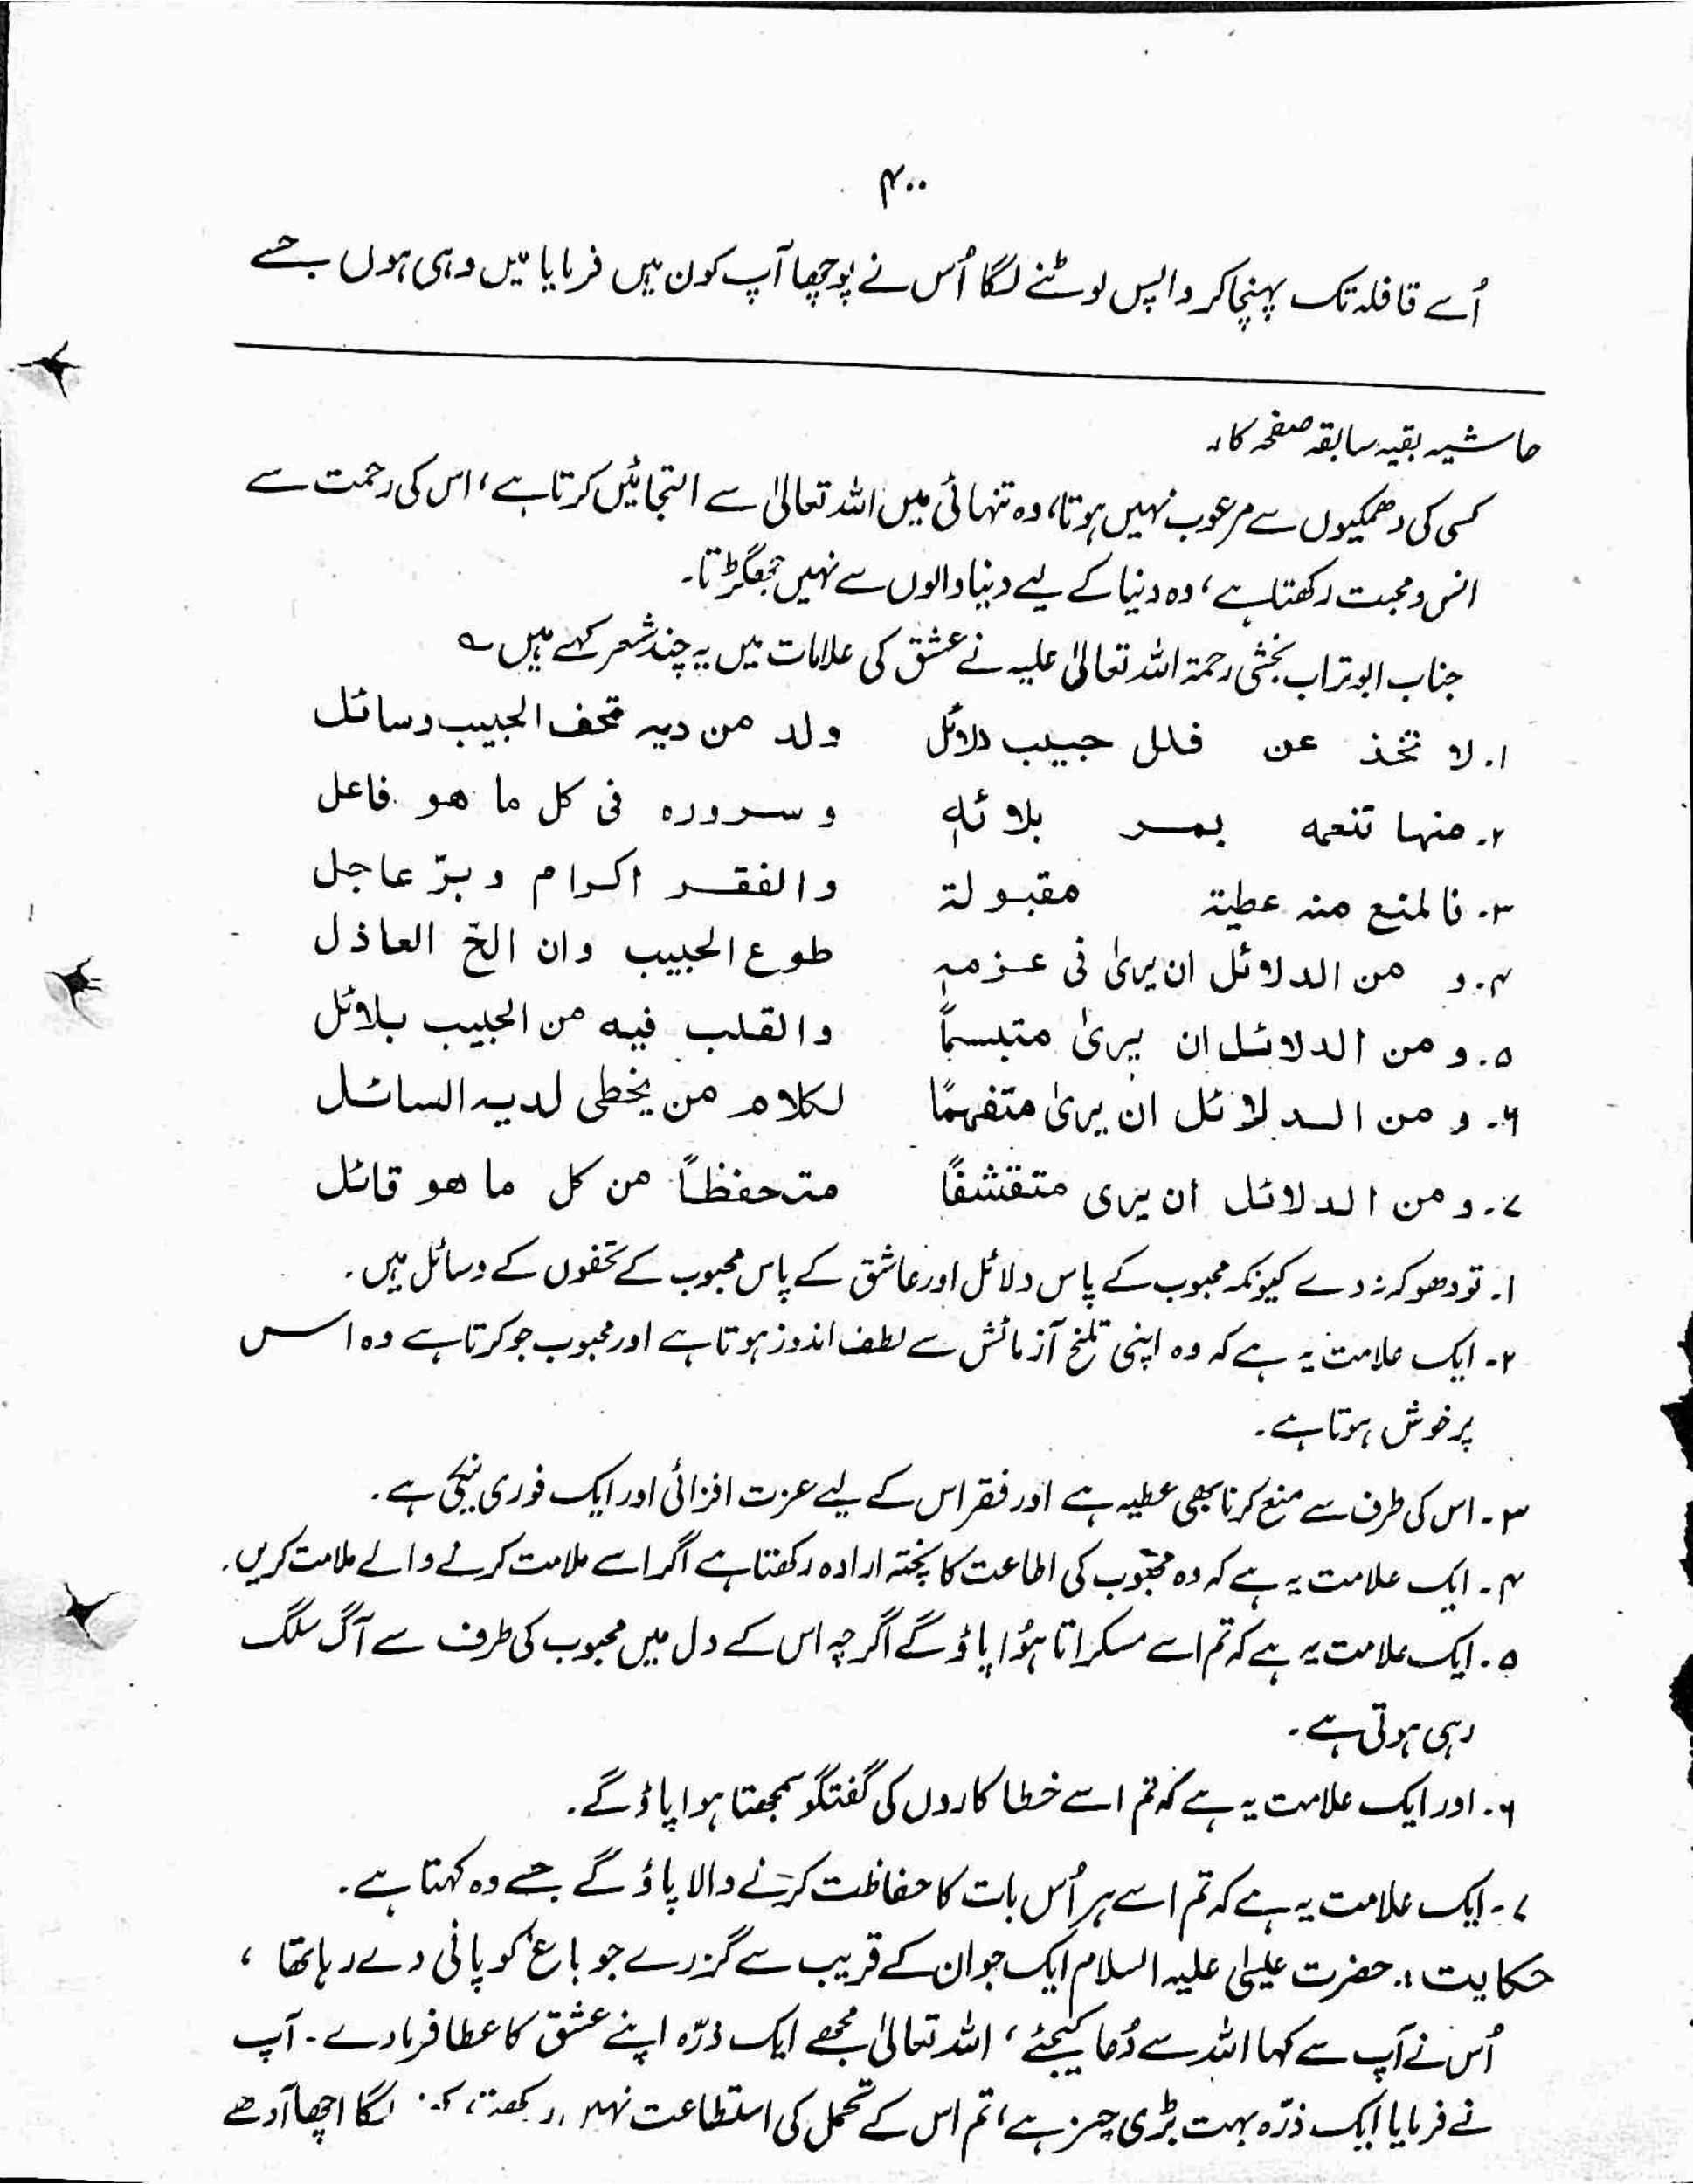 ۴۰۰
اُسے قافلہ تک پہنچا کر واپس لوٹنے لگا اُس نے پوچھا آپ کون ہیں فرمایا میں وہی ہوں جسے
حاشیہ بقیہ سابقہ صفحہ کا:۔
کسی کی دھمکیوں سے مرعوب نہیں ہوتا، وہ تنہائی میں اللہ تعالیٰ سے التجائیں کرتا ہے، اس کی رحمت سے
انس و محبت رکھتا ہے، وہ دنیا کے لیے دنیا والوں سے نہیں جھگڑتا۔
جناب ابو تراب بخشی رحمۃ اللہ تعالیٰ علیہ نے عشق کی علامات میں یہ چند شعر کہے ہیں ؎
۱۔ لا تخذ عن فلل حبیب دلائل ولد من دیہ تحف الحبیب وسائل
۲۔ منہا تنعمہ بمر بلائہٖ و سرورہ فی کل ما ھو فاعل
۳۔ فالمنع منہ عطیۃ مقبولۃ والفقر اکرام و برّ عاجل
۴۔ و من الدلائل ان یریٰ فی عزمہ طوع الحبیب وان الحّ العاذل
۵۔ و من الدلائل ان یریٰ متبسماً والقلب فیہ من الحبیب بلائل
۶۔ و من الدلائل ان یریٰ متفہمًا لکلام من یخطی لدیہ السائل
۷۔ و من الدلائل ان یری متقشفًا متحفظاً من کل ما ھو قائل
۱۔ تو دھوکہ نہ دے کیونکہ محبوب کے پاس دلائل اور عاشق کے پاس محبوب کے تحفوں کے وسائل ہیں۔
۲۔ ایک علامت یہ ہے کہ وہ اپنی تلخ آزمائش سے لطف اندوز ہوتا ہے اور محبوب جو کرتا ہے وہ اس
پر خوش ہوتا ہے۔
۳۔ اس کی طرف سے منع کرنا بھی عطیہ ہے اور فقر اس کے لیے عزت افزائی اور ایک فوری نیکی ہے۔
۴۔ ایک علامت یہ ہے کہ وہ محبوب کی اطاعت کا پختہ ارادہ رکھتا ہے اگر اسے ملامت کرنے والے ملامت کریں۔
۵۔ ایک علامت یہ ہے کہ تم اسے مسکراتا ہُوا پاؤ گے اگرچہ اس کے دل میں محبوب کی طرف سے آگ سلگ
رہی ہوتی ہے۔
۶۔ اور ایک علامت یہ ہے کہ تم اسے خطا کاروں کی گفتگو سمجھتا ہوا پاؤ گے۔
۷۔ ایک علامت یہ ہے کہ تم اسے ہر اُس بات کا حفاظت کرنے والا پاؤ گے جسے وہ کہتا ہے۔
حکایت :۔ حضرت عیسٰی علیہ السلام ایک جوان کے قریب سے گزرے جو باغ کو پانی دے رہا تھا،
اُس نے آپ سے کہا اللہ سے دُعا کیجئے، اللہ تعالیٰ مجھے ایک ذرّہ اپنے عشق کا عطا فرما دے۔ آپ
نے فرمایا ایک ذرّہ بہت بڑی چیز ہے، تم اس کے تحمل کی استطاعت نہیں رکھتے، لگا اچھا آدھے